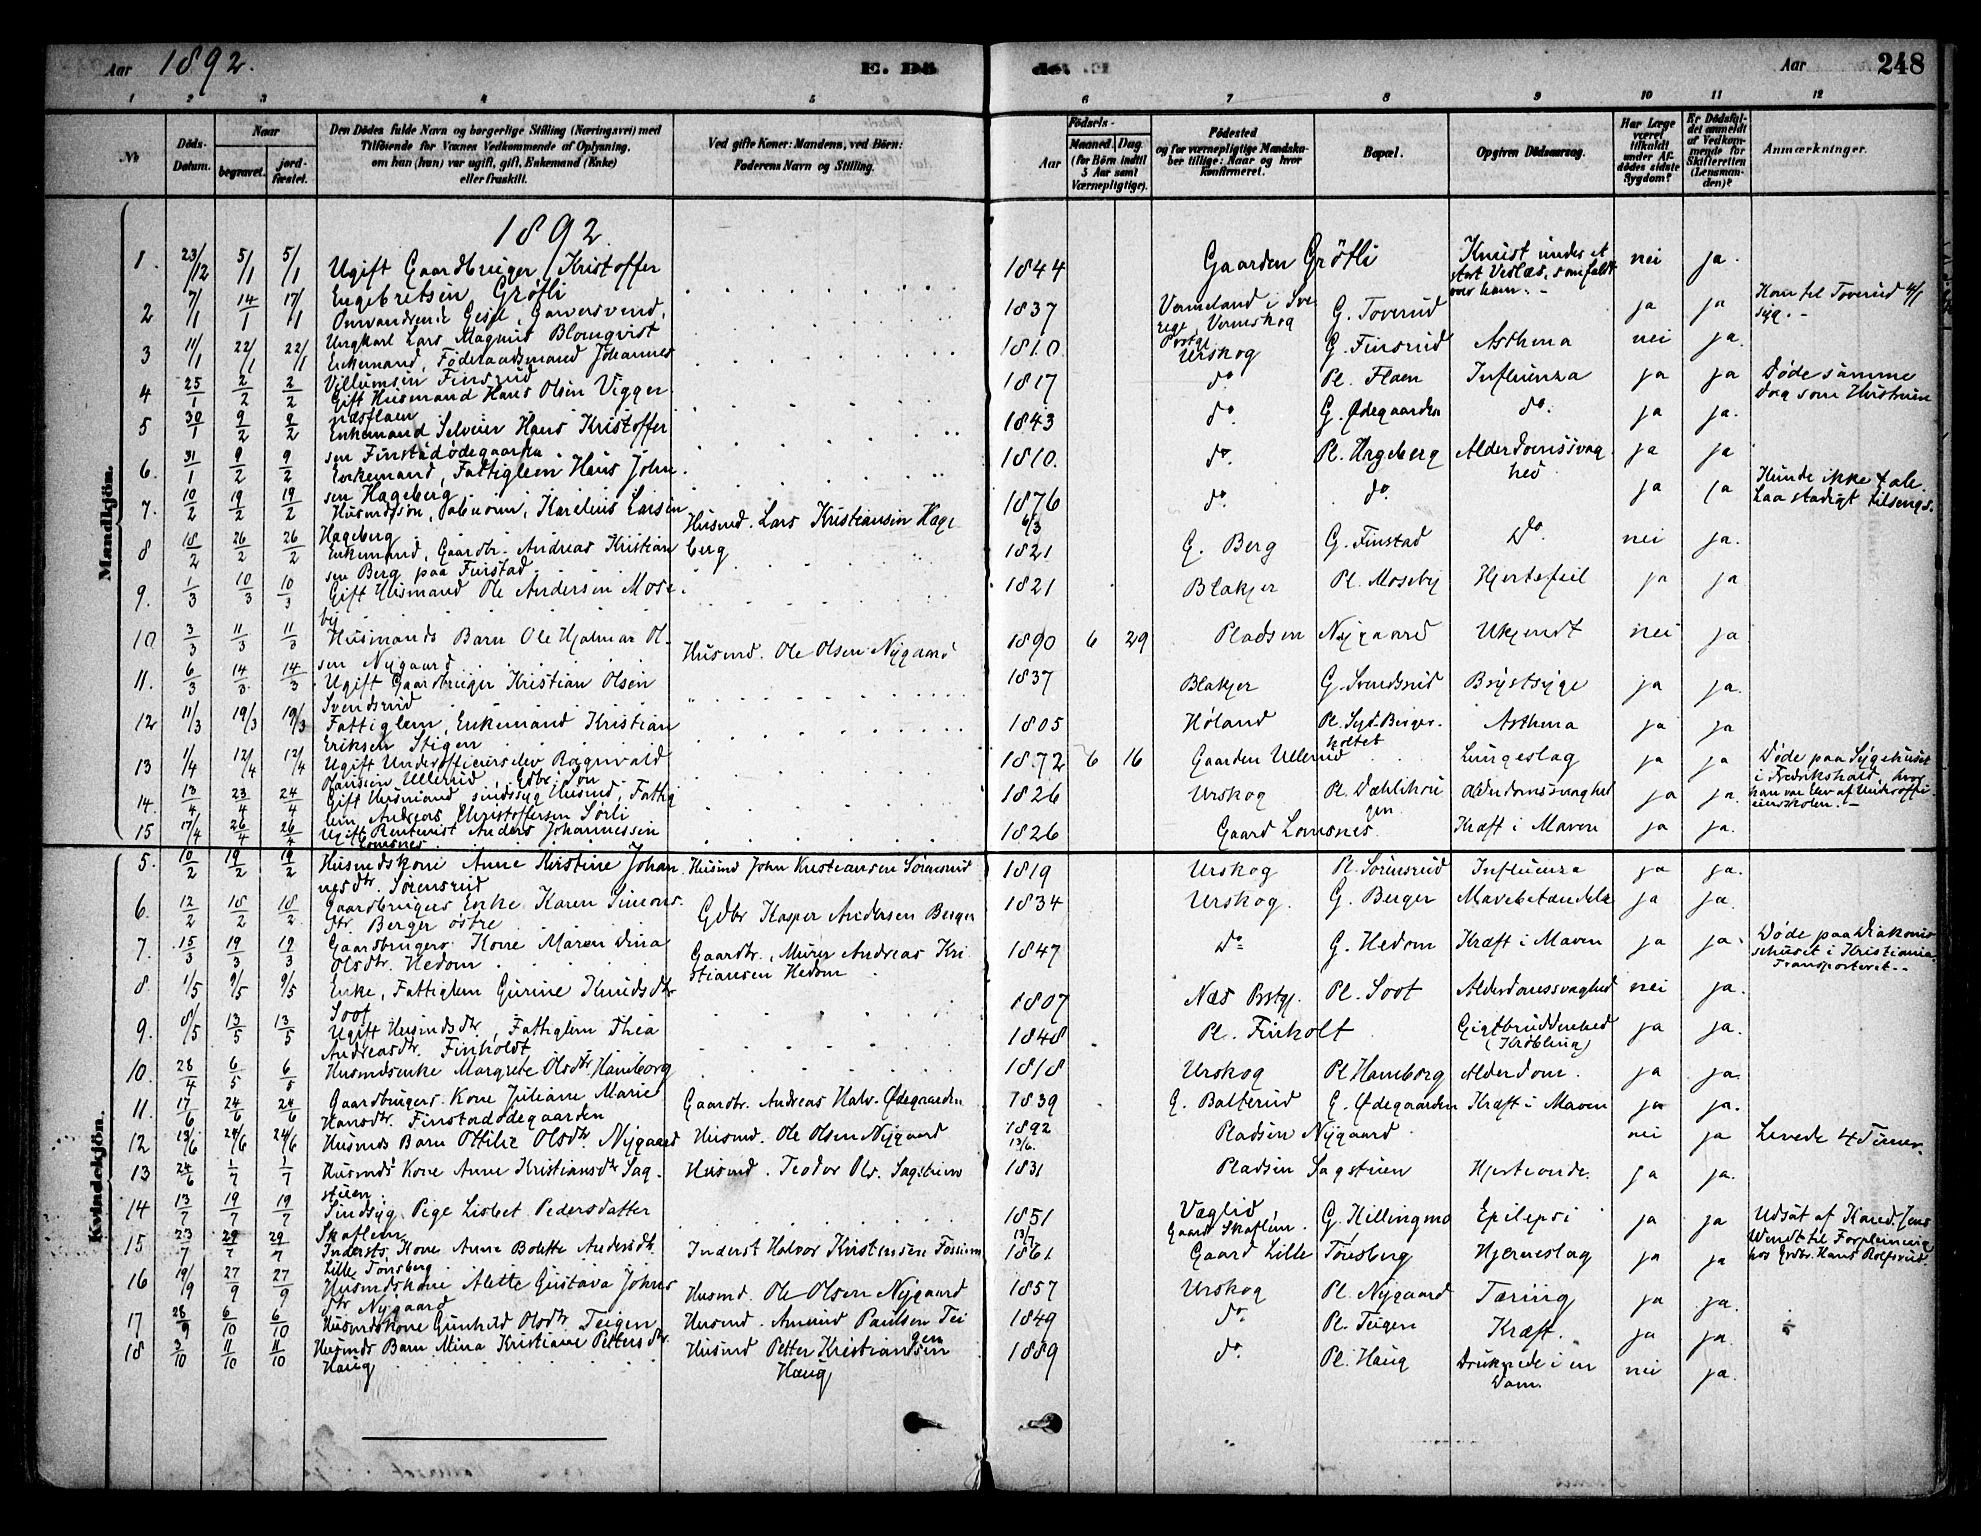 Aar 1892. E. Dö
de. E. Aar 248
1 2 3 4 5 6 7 8 9 10 11 12
No Döds-Datum. Naar begravet. jord-fæstet. Den Dödes fulde Navn og borgerlige Stilling (Næringsvei) med
Tilföiende for Voxnes Vedkommende af Oplysning,
om han (hun) var ugift, gift, Enkemand (Enke)
eller fraskilt.
Ved gifte Koner: Mandens, ved Börn:
Faderens Navn og Stilling.
Födsels- Aar Maaned. Dag. (for Börn indtil 5 Aar samt Værnepligtige).
Födested
og for værnepligtige Mandska-
ber tillige: Naar og hvor
konfirmeret.
Bopæl.
Opgiven Dödsaarsag.
Har Læge
været
tilkaldt
under Af-
dödes sidste
Sygdom?
Er Dödsfal-
det anmeldt
af Vedkom-
mende for
Skifteretten
(Lensman-
den)?
Anmærkninger.
Mandkjön.
1892
1. 23/12 5/1 5/1 Ugift Gaardbruger Kristoffer
Engebretsen Grøfli 1844 Gaarden Grøfli Knust under et
stort Vedlæs, som faldt
over ham. - nei ja.
2 7/1 14/1 17/1 Omvandrende Gesel, Garversvend,
Ungkarl Lars Magnus Blomqvist 1837 Vermeland i Sve
rige, Vermskog
Prstgl. G. Toverud ja ja Kom til Toverud 4/1
syg. -
3 11/1 22/1 22/1 Enkemand, Føderaadsmand Johannes
Villumsen Finsrud 1810 Urskog G. Finsrud Asthma nei ja.
4 25/1 2/2 2/2 Gift Husmand Hans Olsen Vigger
næsflaen 1817 do Pl. Flaen Influenza ja ja Døde samme
dag som Hustruen
5 30/1 9/2 9/2 Enkemand Selveier Hans Kristoffer
sen Finstadødegaarden 1843 do. G. Ødegaarden do. ja ja.
6. 31/1 9/2 9/2 Enkemand, Fattiglem Hans John
sen Hageberg 1810. do. Pl. Hageberg Alderdomssvag
hed ja ja
7. 10/2 19/2 19/2 Husmdssøn, Karelius Larsen
Hageberg Husmd. Lars Kristiansen Hage
berg 1876 6/3 do. do. ja ja Kunde ikke tale.
Laa stadigt tilsengs.
8 18/2 26/2 26/2 Enkemand, Gaardbr. Andreas Kristian
sen Berg paa Finstad 1821 G. Berg G. Finstad Do. nei ja.
9. 1/3 10/3 10/3 Gift Husmand Ole Andersen Mose
by 1821 Blakjer Pl. Moseby Hjertefeil ja ja
10 3/3 11/3 11/3 Husmands Barn Ole Hjalmar Ol-
sen Nygaard Husmd. Ole Olsen Nygaard 1890 6 29 Pladsen Nygaard Ukjendt nei ja
11. 6/3 14/3 14/3 Ugift Gaardbruger Kristian Olsen
Svendsrud 1837 Blakjer G. Svendsrud Brystsyge ja ja.
12 11/3 19/3 19/3 Fattiglem, Enkemand Kristian
Eriksen Stigen 1805 Høland Pl. Synd. Berger-
holtet Asthma ja ja
13 1/4 12/4 12/4 Ugift Underofficerselev Ragnvald
Ullerud, Gdbr. Søn 1872 6 16 Gaarden Ullerud Lungeslag ja ja Døde paa Sygehuset
i Fredrikshald, hvor
han var Elev af Underoffi-
cerskolen. -
14. 13/4 23/4 24/4 Gift Husmand, sindssyg Husmd., Fattig
lem, Andreas Christoffersen Sørli 1826 Urskog Pl. Dæhlihau
gen Alderdomssvaghed ja ja.
15 17/4 26/4 26/4 Ugift Rentenist Anders Johannessen
Lomsnes 1826 Gaard Lomsnes. Kræft i Maven ja ja.
Kvindekjön.
5. 10/2 19/2 19/2 Husmdskone Anne Kristine Johan
nesdtr. Sørensrud Husmd John Kristiansen Sørensrud 1819 Urskog Pl. Sørensrud Influenza ja ja.
6. 12/2 18/2 18/2 Gaardbrugers Enke Karen Simons
dtr. Berger østre Gdbr Kasper Andersen Berger 1834 Urskog. G. Berger Mavebetændelse ja ja.
7. 15/3 19/3 19/3 Gaardbrugers Kone Maren Dina
Olsdtr. Hedom Gaardbr., Murer Andreas Kri
stiansen Hedom 1847 Do G. Hedom Kræft i Maven ja ja. Døde paa Diakonis
sehuset i Kristiania.
Transporteret. -
8 1/5 9/5 9/5 Enke, Fattiglem Gurine Knudsdtr
Soot 1807 Næs Prstgj. Pl. Soot Alderdomssvaghed nei ja.
9. 8/5 13/5 13/5 Ugift Husmdsdtr, Fattiglem Thea
Andreasdtr. Finholdt 1848 Pl. Finholt Gigtbrudenhed
(Krøbling) ja ja.
10. 28/4 6/5 6/5 Husmdsenke Margrete Olsdtr. Hamborg 1818 Urskog Pl Hamborg Alderdom. ja ja.
11. 17/6 24/6 24/6 Gaardbrugers Kone Juliane Marie
Hansdtr. Finstadødegaarden Gaardbr. Andreas Halv. Ødegaarden 1839 G. Balterud G. Ødegaarden Kræft i Maven ja ja.
12 13/6 24/6 24/6 Husmds Barn Ottilie Olsdtr. Nygaard Husmd. Ole Olsen Nygaard 1892 13/6. Pladsen Nygaard nei ja Levede 4 Timer.
13 24/6 1/7 1/7 Husmds Kone Anne Kristiansdtr Sag-
stuen. Husmd. Teodor Ols. Sagstuen 1831 Pladsen Sagstuen Hjerteonde. ja ja.
14 13/7 19/7 19/7 Sindsyg Pige Lisbet Pedersdatter
Skaflem 1851 13/7 Væglid
Gaard Skaflem. G. Killingmo Epilepsi ja ja Udsat af
til Forpleining
hos Gdbr. Hans Rolfsrud.
15 23/7 29/7 29/7 Inderste Kone Anne Bolette Andersdtr.
Lille Tønsberg. Inderst Halvor Kristensen 1861 Gaard Lille Tønsberg Hjerneslag ja ja
16 19/9 27/9 27/9 Husmdskone Alette Gustava Johns
dtr Nygaard Husmd. Ole Olsen Nygaard 1857 Urskog Pl. Nygaard Tæring ja ja.
17 28/9 6/10 6/10 Husmdskone Gunhild Olsdtr. Teigen Husmd. Amund Paulsen Tei
gen 1849 do. Pl. Teigen Kræft. ja ja.
18 3/10 11/10 11/10 Husmds Barn Mina Kristiane Pettersdtr
Haug Husmd Petter Kristiansen
Haug 1889 do. Pl. Haug Druknede i en
Dam. nei ja.